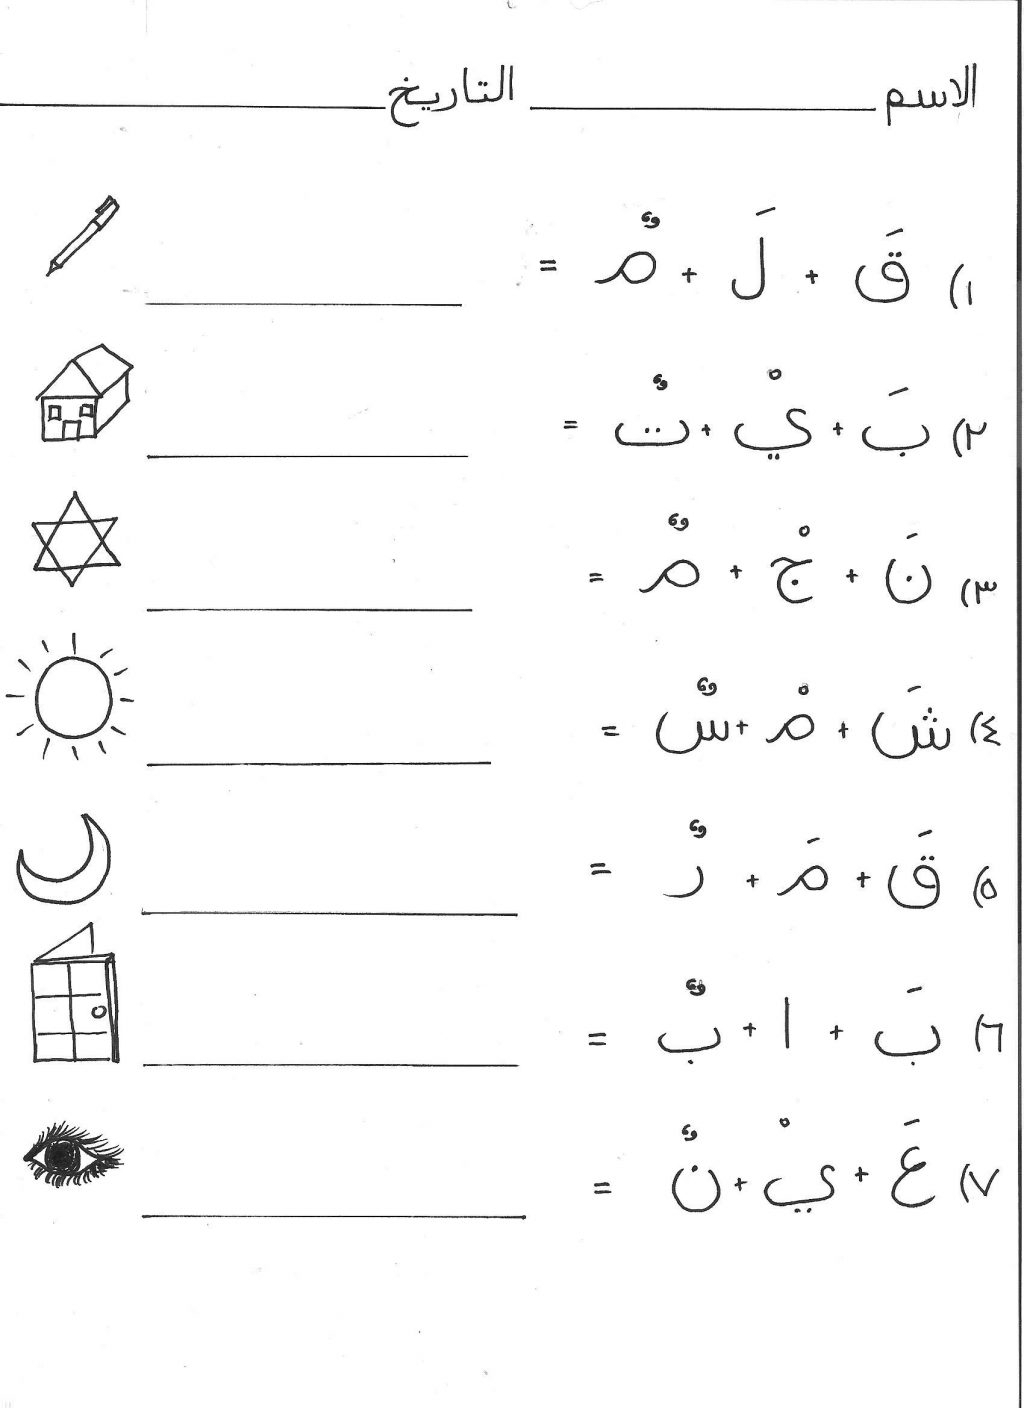 الاسم ____________ التاريخ ____________
١) قَ + لَ + مٌ = ____________
٢) بَ + يْ + تٌ = ____________
٣) نَ + جْ + مٌ = ____________
٤) شَ + مْ + سٌ = ____________
٥) قَ + مَ + رٌ = ____________
٦) بَ + ا + بٌ = ____________
٧) عَ + يْ + نٌ = ____________